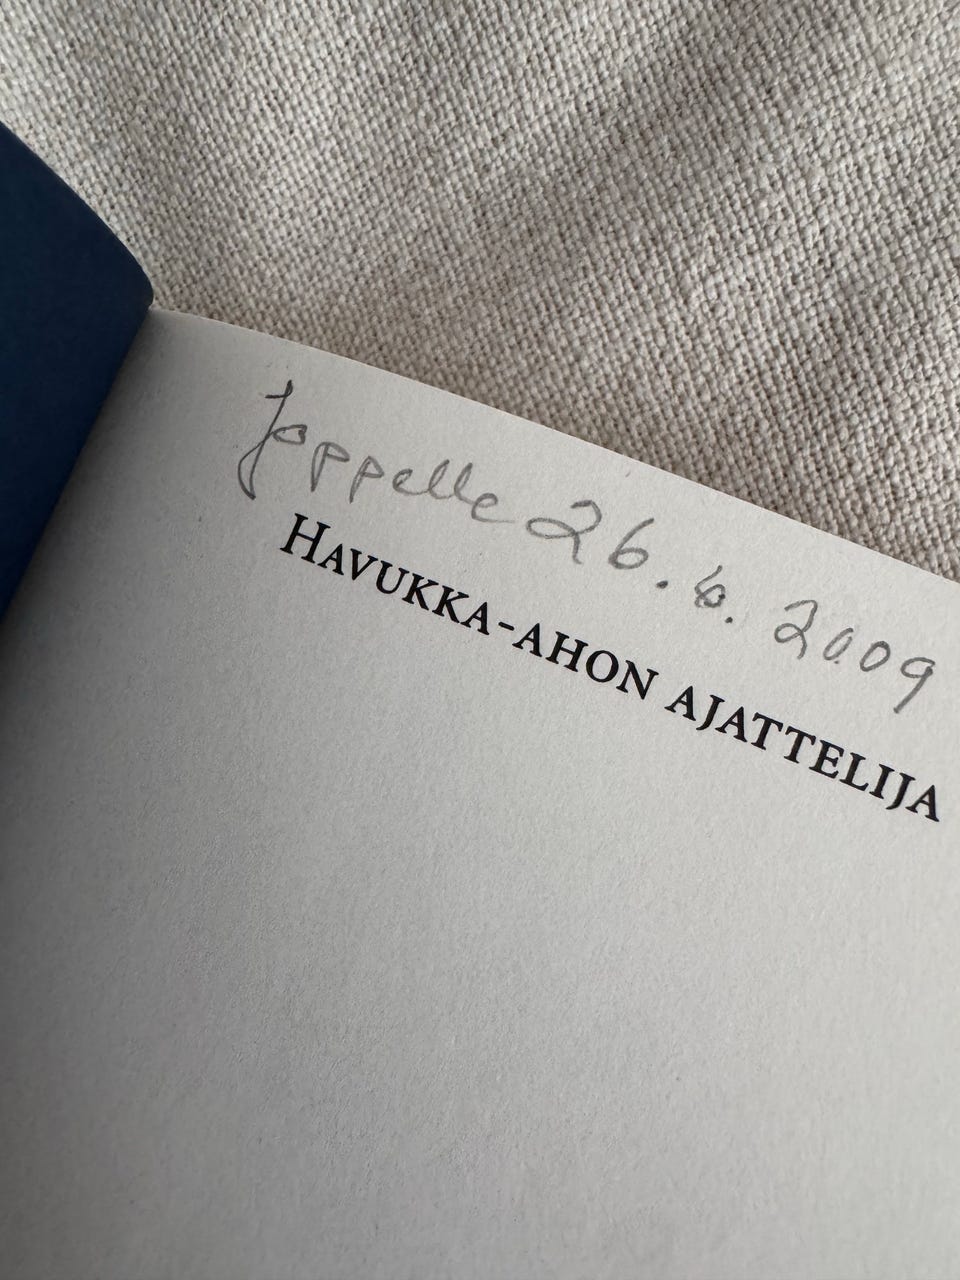 Joppelle 26.6.2009
HAVUKKA-AHON AJATTELIJA